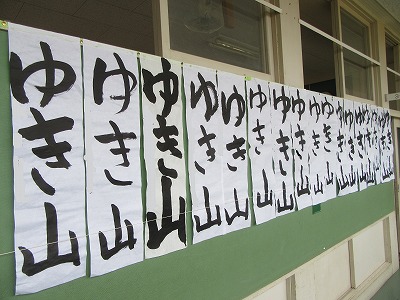 ゆき山
ゆき山
ゆき山
ゆき山
ゆき山
ゆき山
ゆき山
ゆき山
ゆき山
ゆき山
ゆき山
ゆき山
ゆき山
ゆき山
ゆき山